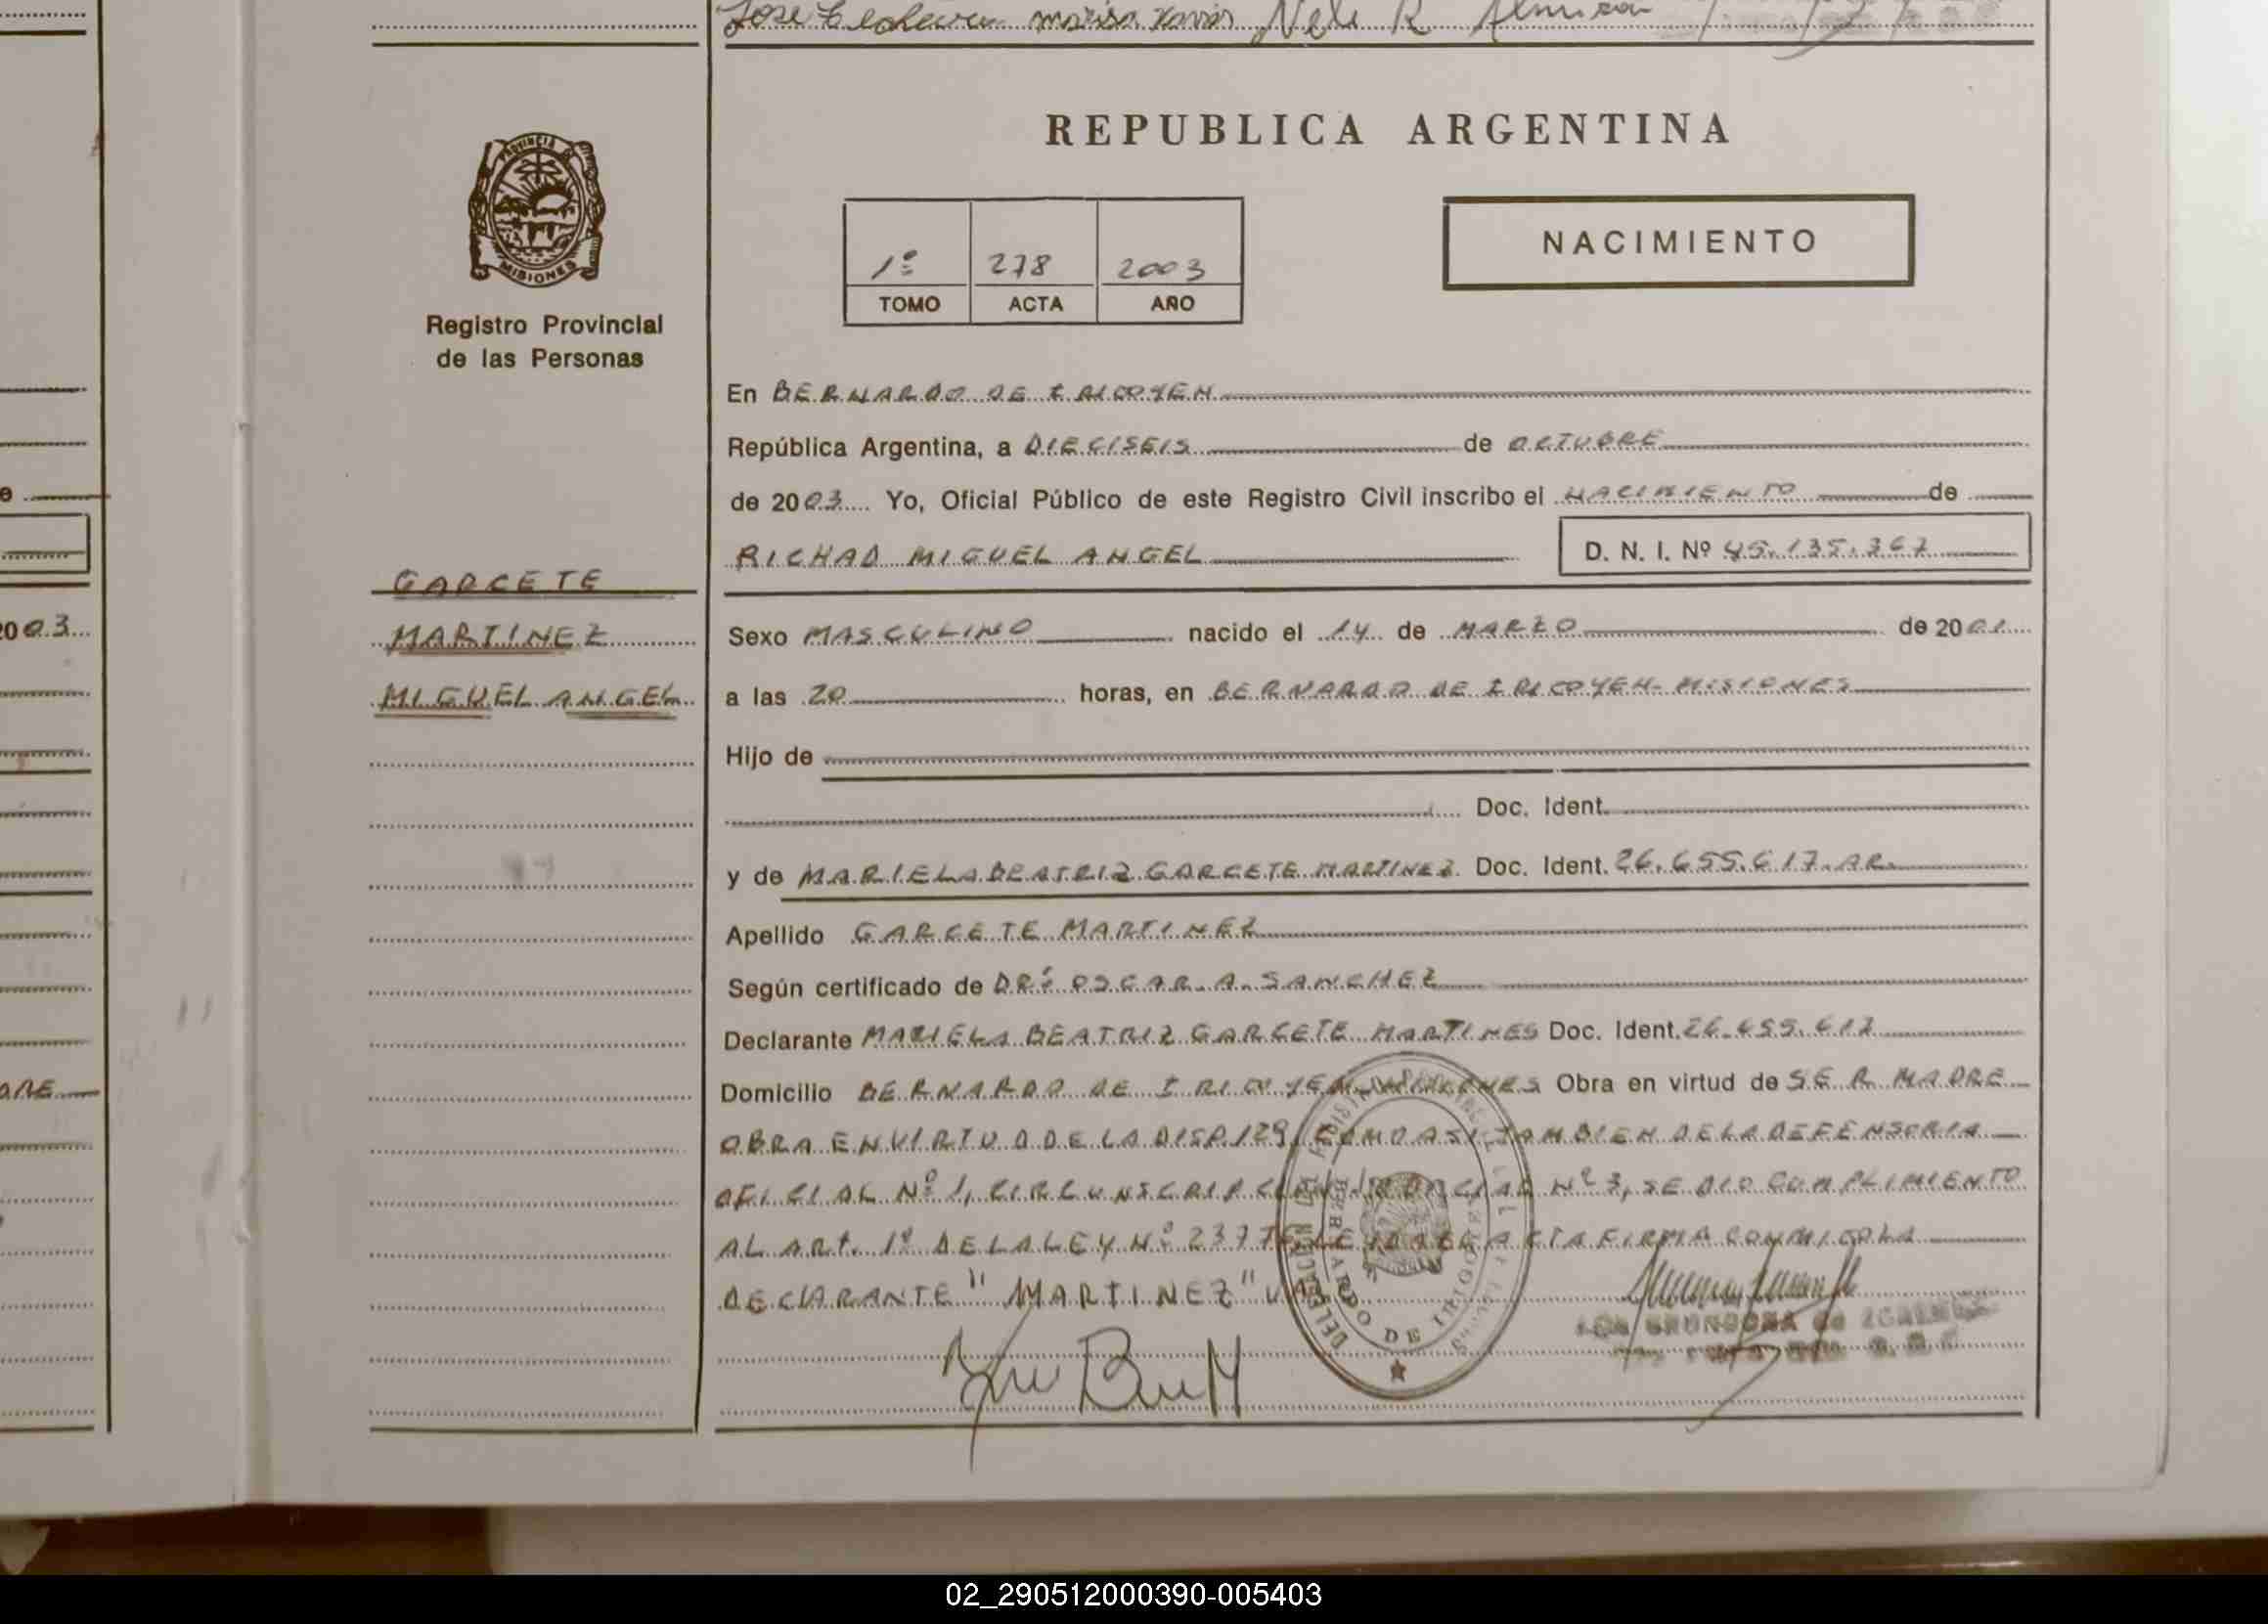 Jose
REPUBLICA ARGENTINA
PROVINCIA DE
MISIONES
Registro Provincial
de las Personas
1º 278 2003
TOMO ACTA AÑO
NACIMIENTO
En BERNARDO DE IRIGOYEN
República Argentina, a DIECISEIS de OCTUBRE
de 2003 Yo, Oficial Público de este Registro Civil inscribo el NACIMIENTO de
RICHAD MIGUEL ANGEL D. N. I. Nº 45.135.367
GARCETE
MARTINEZ
MIGUEL ANGEL
Sexo MASCULINO nacido el 14 de MARZO de 2001
a las 20 horas, en BERNARDO DE IRIGOYEN-MISIONES
Hijo de
Doc. Ident.
y de MARIELA BEATRIZ GARCETE MARTINEZ Doc. Ident. 26.655.617.AR.
Apellido GARCETE MARTINEZ
Según certificado de DR. OSCAR.A.SANCHEZ
Declarante MARIELA BEATRIZ GARCETE MARTINES Doc. Ident. 26.655.617
Domicilio BERNARDO DE IRIGOYEN MISIONES Obra en virtud de SER MADRE
OBRA EN VIRTUD DE LA DISP.129, COMO ASI TAMBIEN DE LA DEFENSORIA
OFICIAL Nº 1, CIRCUNSCRIPCION JUDICIAL Nº 3, SE DIO CUMPLIMIENTO
AL ART. 1º DE LA LEY Nº 23776, LEIDA EL ACTA FIRMA CONMIGO LA
DECLARANTE "MARTINEZ" VALE
DELEGACION
BERNARDO DE IRIGOYEN
003
ORE
02_290512000390-005403